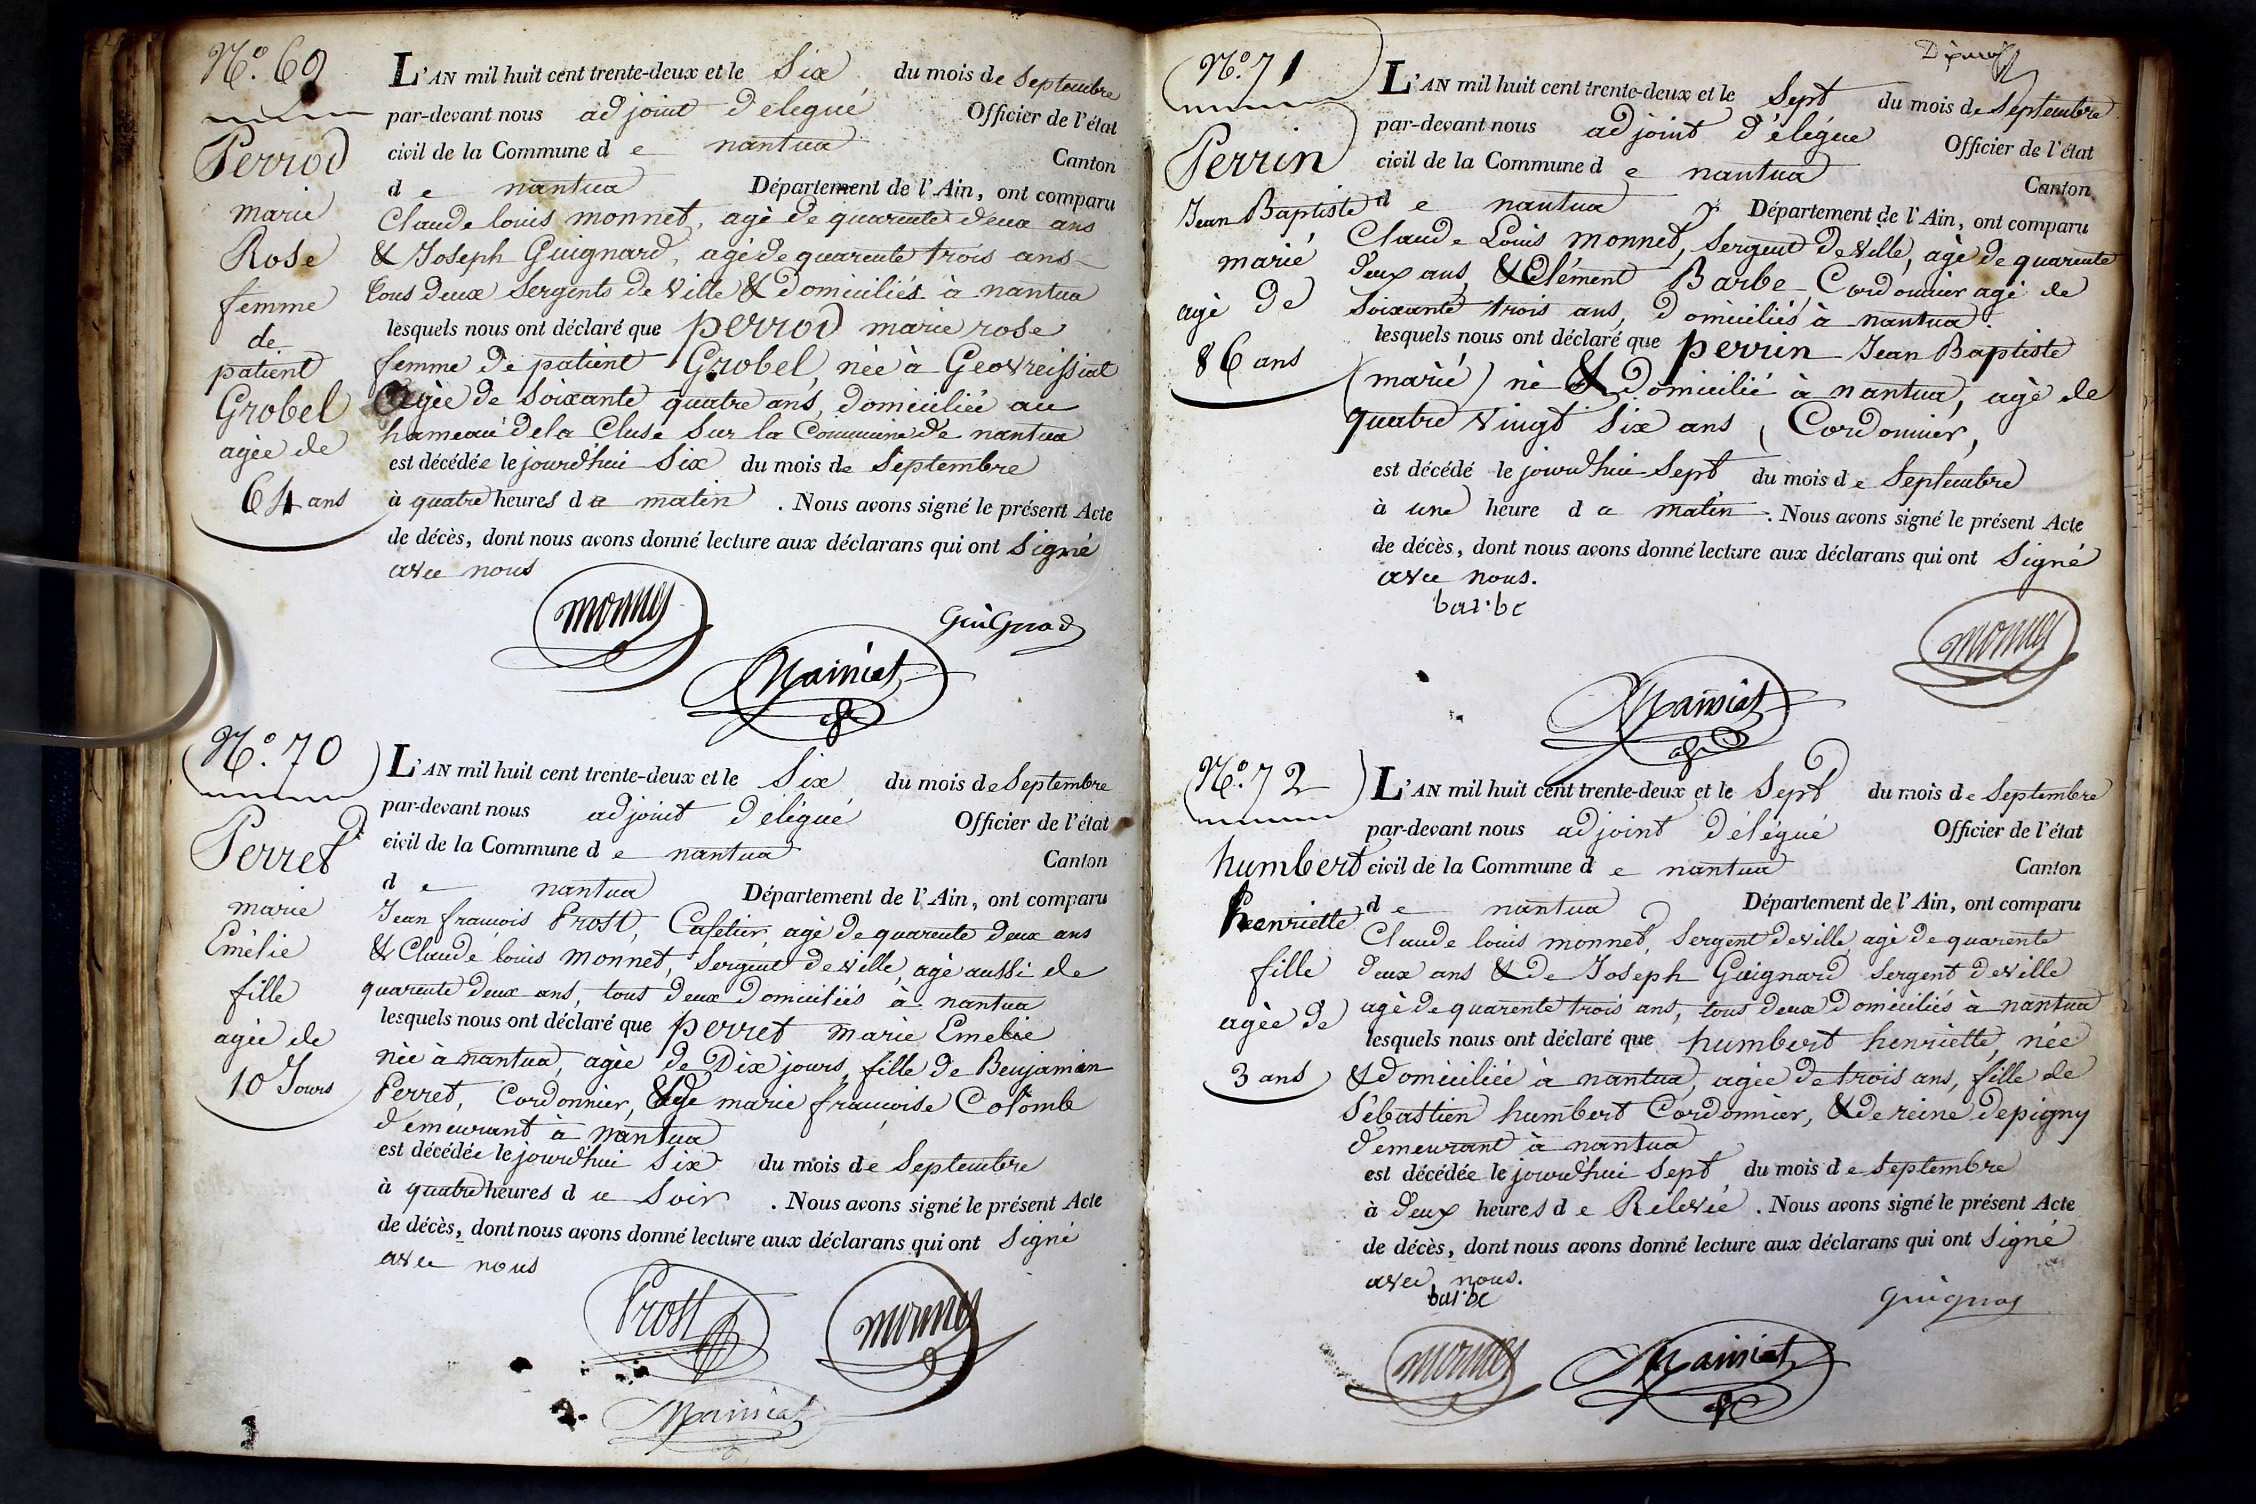 N.° 69
Perrod
marie
Rose
femme
de
patient
Grobel
agée de
64 ans
L'AN mil huit cent trente-deux et le Six du mois de Septembre
par-devant nous adjoint délégué Officier de l'état
civil de la Commune de nantua Canton
de nantua Département de l'Ain, ont comparu
Claude louis monnet, agé de quarente deux ans
& Joseph Guignard, agé de quarente trois ans
tous deux Sergents de Ville & domiciliés à nantua
lesquels nous ont déclaré que perrod marie rose
femme de patient Grobel, née à Geovreissiat
agée de Soixante quatre ans, domiciliée au
hameau de la Cluse Sur la Commune de nantua
est décédée le jourd'hui Six du mois de Septembre
à quatre heures du matin. Nous avons signé le présent Acte
de décès, dont nous avons donné lecture aux déclarans qui ont Signé
avec nous
monnet
Guignard
Mainiat
N.° 70
Perret
marie
Emélie
fille
agée de
10 Jours
L'AN mil huit cent trente-deux et le Six du mois de Septembre
par-devant nous adjoint délégué Officier de l'état
civil de la Commune de nantua Canton
de nantua Département de l'Ain, ont comparu
Jean françois Prost, Cafetier, agé de quarente deux ans
& Claude louis Monnet, Sergent de ville, agé aussi de
quarente deux ans, tous deux domiciliés à nantua
lesquels nous ont déclaré que perret marie Emelie
née à nantua, agée de Dix jours, fille de Benjamin
Perret, Cordonnier, & de marie françoise Colomb
demeurant à nantua
est décédée le jourd'hui Six du mois de Septembre
à quatre heures du Soir. Nous avons signé le présent Acte
de décès, dont nous avons donné lecture aux déclarans qui ont Signé
avec nous
Prost
monnet
Mainiat
N.° 71
Perrin
Jean Baptiste
marié
agé de
86 ans
L'AN mil huit cent trente-deux et le Sept du mois de Septembre
par-devant nous adjoint délégué Officier de l'état
civil de la Commune de nantua Canton
de nantua Département de l'Ain, ont comparu
Claude Louis monnet, Sergent de ville, agé de quarente
deux ans, & Clément Barbe Cordonnier agé de
Soixante trois ans, domiciliés à nantua.
lesquels nous ont déclaré que perrin Jean Baptiste
(marié) né & domicilié à nantua, agé de
quatre vingt Six ans, Cordonnier,
est décédé le jourd'hui Sept du mois de Septembre
à une heure du matin. Nous avons signé le présent Acte
de décès, dont nous avons donné lecture aux déclarans qui ont Signé
avec nous.
barbe
monnet
Mainiat
N.° 72
humbert
henriette
fille
agée de
3 ans
L'AN mil huit cent trente-deux et le Sept du mois de Septembre
par-devant nous adjoint délégué Officier de l'état
civil de la Commune de nantua Canton
de nantua Département de l'Ain, ont comparu
Claude louis monnet, Sergent de ville agé de quarente
deux ans & de Joseph Guignard Sergent de ville
agé de quarente trois ans, tous deux domiciliés à nantua
lesquels nous ont déclaré que humbert henriette, née
& domiciliée à nantua, agée de trois ans, fille de
Sébastien humbert Cordonnier, & de reine depigny
demeurant à nantua
est décédée le jourd'hui Sept du mois de Septembre
à deux heures de Relevée. Nous avons signé le présent Acte
de décès, dont nous avons donné lecture aux déclarans qui ont Signé
avec nous.
barbe
guignar
monnet
Mainiat